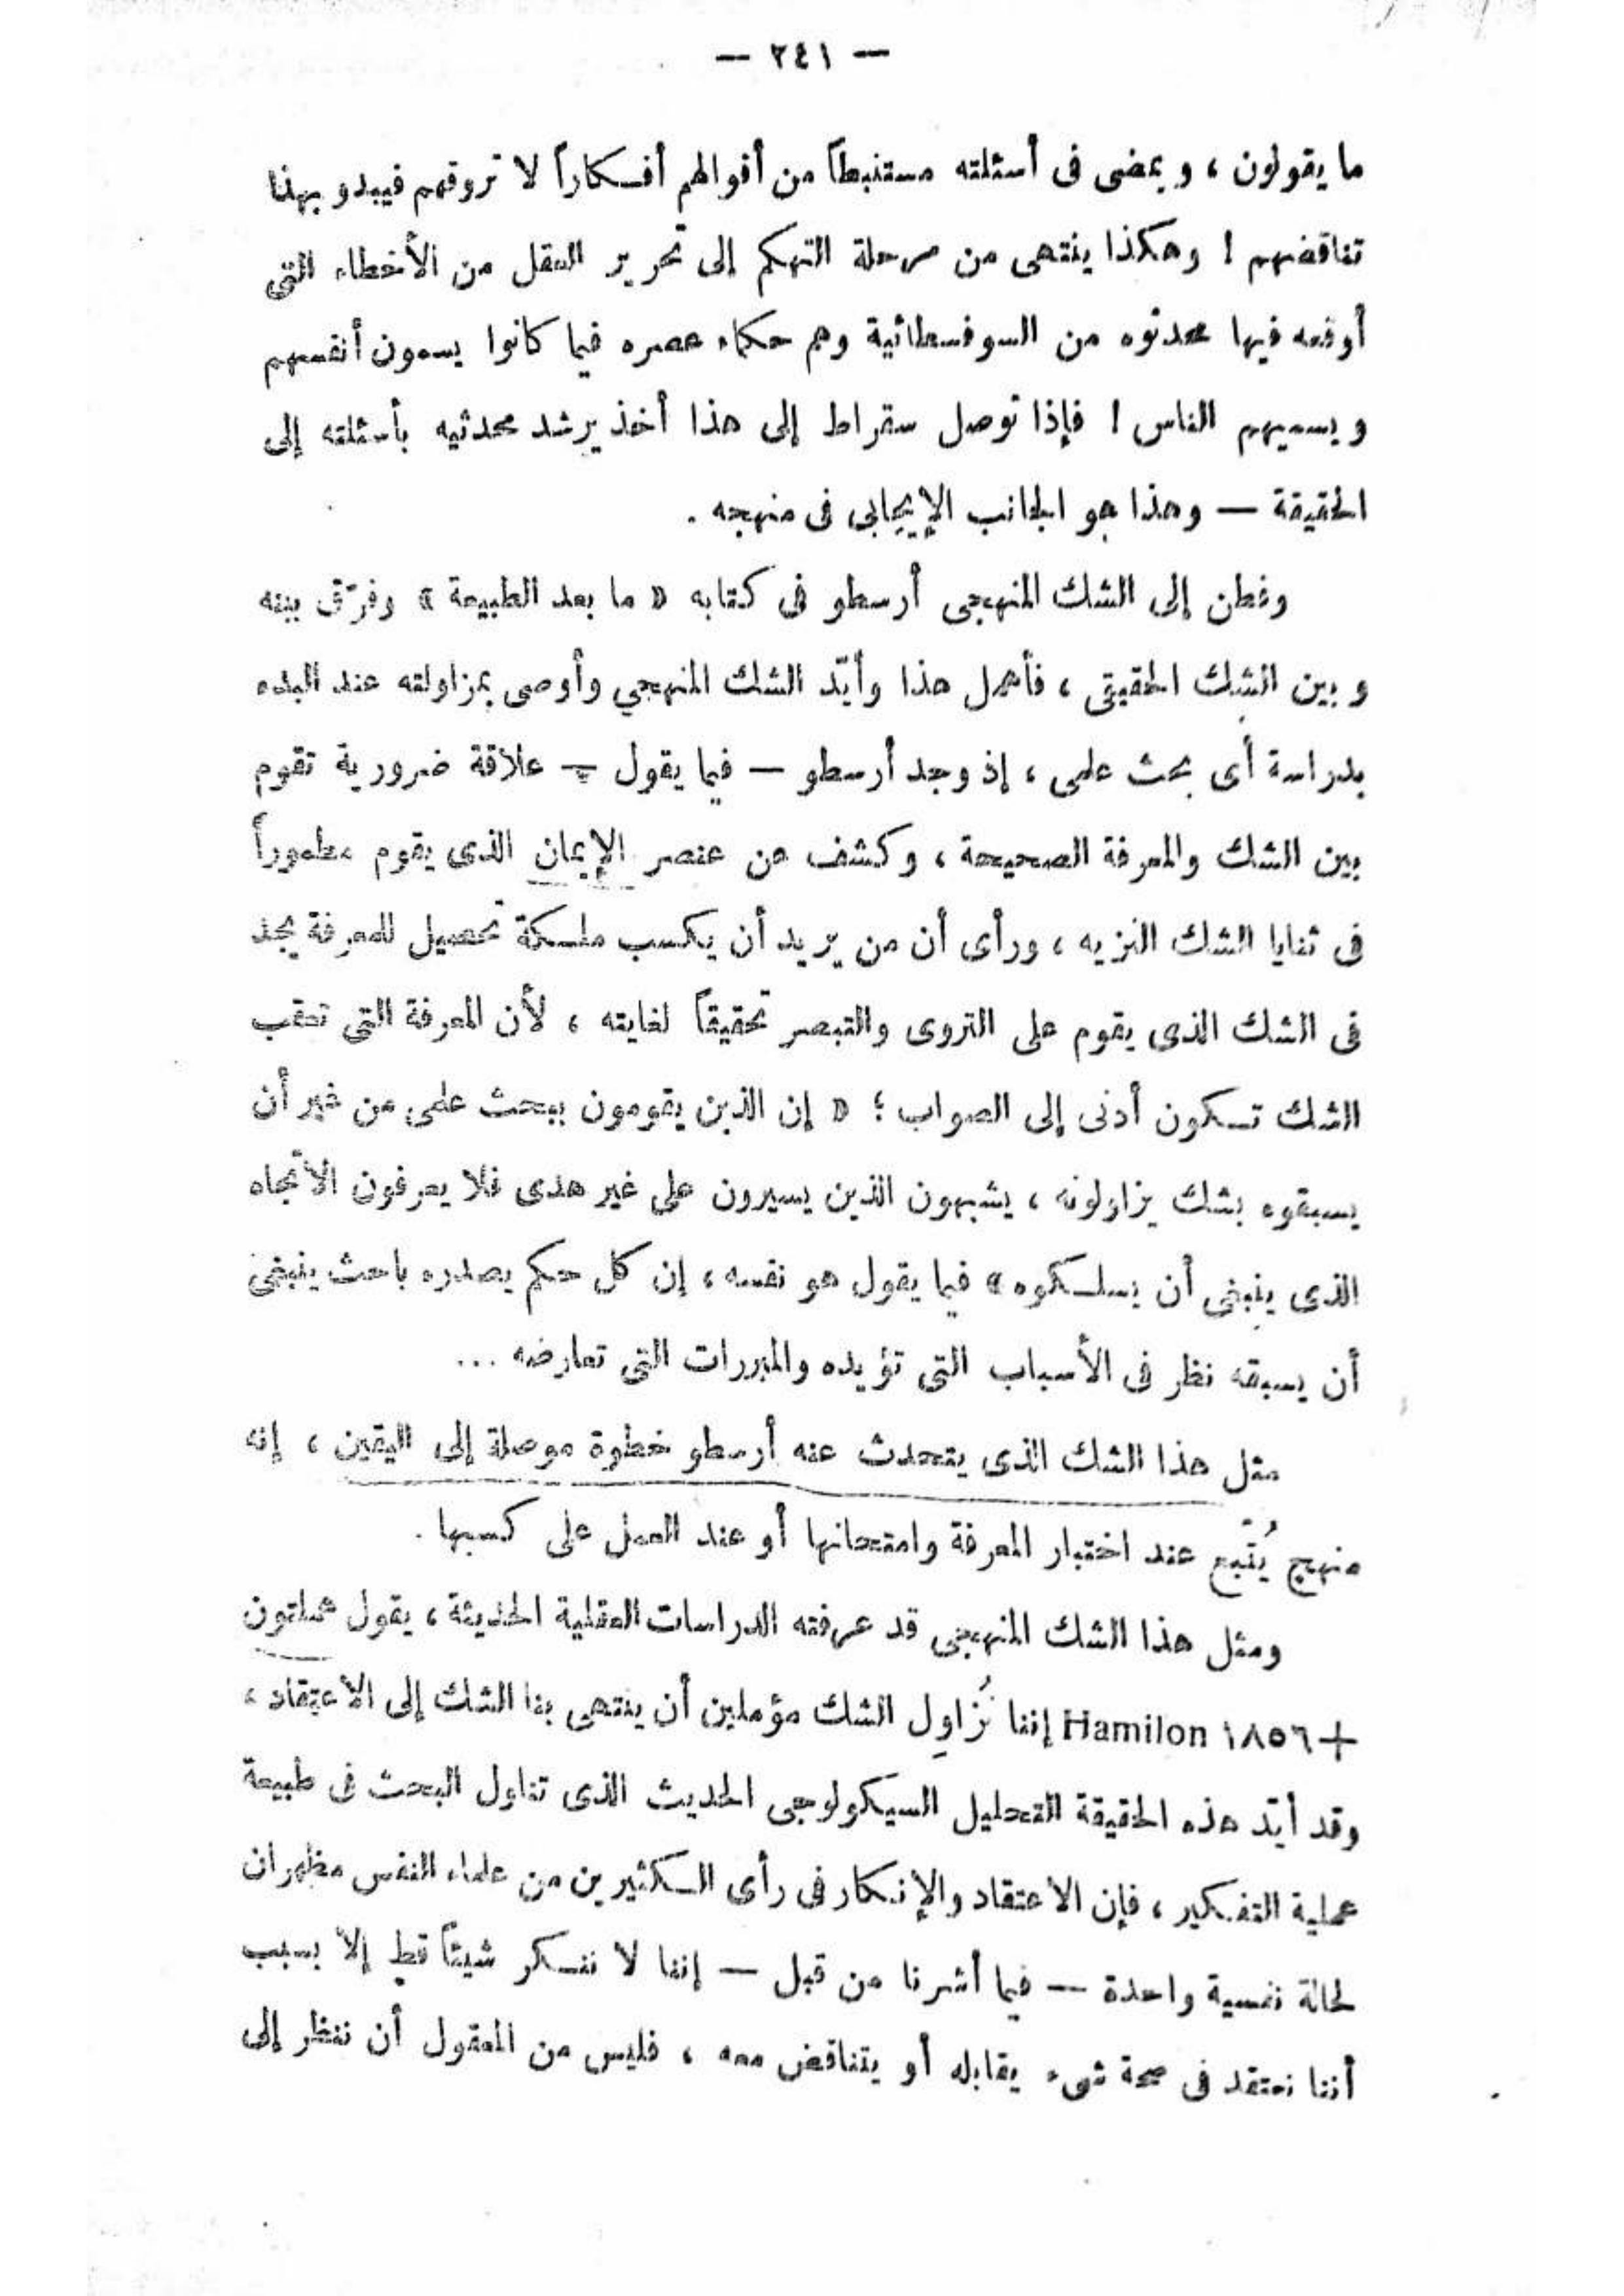 — ٢٤١ —
ما يقولون ، ويمضى فى أسئلته مستنبطاً من أقوالهم أفكاراً لا تروقهم فيبدو بهذا
تناقضهم ! وهكذا ينتهى من مرحلة التهكم إلى تحرير العقل من الأخطاء التى
أوقعه فيها محدثوه من السوفسطائية وهم حكماء عصره فيما كانوا يسمون أنفسهم
ويسميهم الناس ! فإذا توصل سقراط إلى هذا أخذ يرشد محدثيه بأسئلته إلى
الحقيقة — وهذا هو الجانب الإيجابى فى منهجه .
وفطن إلى الشك المنهجى أرسطو فى كتابه « ما بعد الطبيعة » وفرّق بينه
وبين الشك الحقيقى ، فأهمل هذا وأيّد الشك المنهجي وأوصى بمزاولته عند البدء
بدراسة أى بحث علمى ، إذ وجد أرسطو — فيما يقول — علاقة ضرورية تقوم
بين الشك والمعرفة الصحيحة ، وكشف عن عنصر الإيمان الذى يقوم مطموراً
فى ثنايا الشك النزيه ، ورأى أن من يريد أن يكسب ملكة تحصيل للمعرفة يجد
فى الشك الذى يقوم على التروى والتبصر تحقيقاً لغايته ، لأن المعرفة التى تعقب
الشك تكون أدنى إلى الصواب ؛ « إن الذين يقومون ببحث علمى من غير أن
يسبقوه بشك يزاولونه ، يشبهون الذين يسيرون على غير هدى فلا يعرفون الاتجاه
الذى ينبغى أن يسلكوه » فيما يقول هو نفسه ، إن كل حكم يصدره باحث ينبغى
أن يسبقه نظر فى الأسباب التى تؤيده والمبررات التى تعارضه ...
مثل هذا الشك الذى يتحدث عنه أرسطو خطوة موصلة إلى اليقين ، إنه
منهج يُتّبع عند اختبار المعرفة وامتحانها أو عند العمل على كسبها .
ومثل هذا الشك المنهجى قد عرفته الدراسات العقلية الحديثة ، يقول هملتون
+ ١٨٥٦ Hamilon إننا نُزاوِل الشك مؤملين أن ينتهى بنا الشك إلى الاعتقاد ،
وقد أيّد هذه الحقيقة التحليل السيكولوجى الحديث الذى تناول البحث فى طبيعة
عملية التفكير ، فإن الاعتقاد والإنكار فى رأى الكثيرين من علماء النفس مظهران
لحالة نفسية واحدة — فيما أشرنا من قبل — إننا لا ننكر شيئاً قط إلا بسبب
أننا نعتقد فى صحة شىء يقابله أو يتناقض معه ، فليس من المعقول أن ننظر إلى